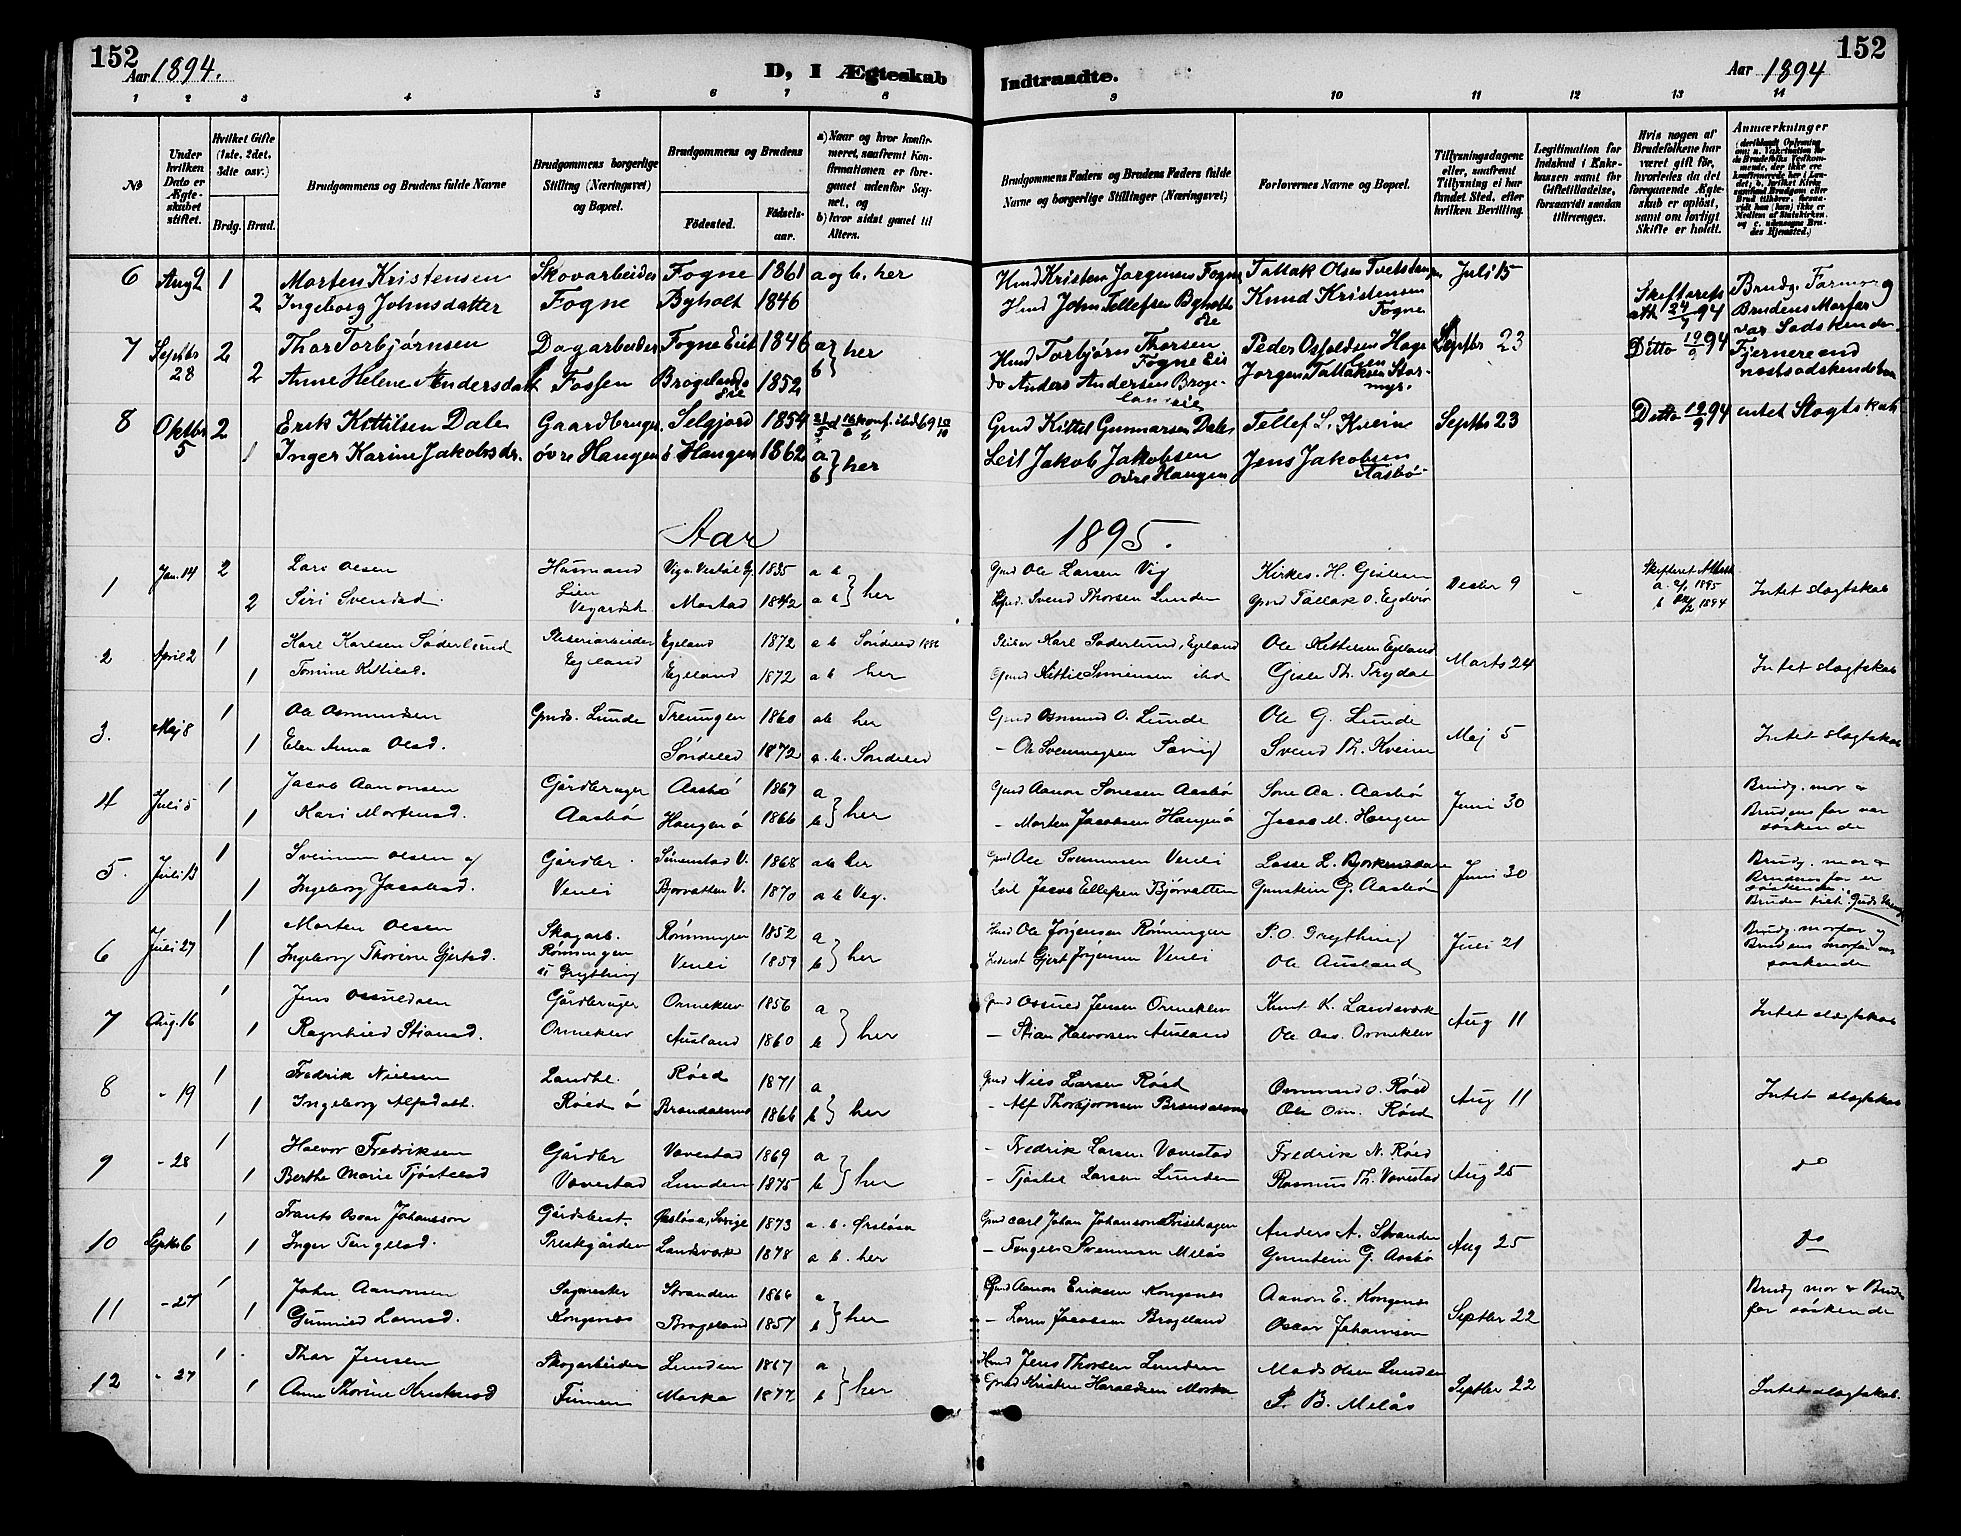 152
Aar 1894.
D, I Ægteskab
Indtraadte.
Aar 1894
152
1 2 3 4 5 6 7 8 9 10 11 12 13 14
№
Under hvilken Dato er Ægteskabet stiftet.
Hvilket Gifte (1ste, 2det, 3die osv.)
Brdg. Brud.
Brudgommens og Brudens fulde Navne
Brudgommens borgerlige Stilling (Næringsvei) og Bopæl.
Brudgommens og Brudens
Fødested.
Fødselsaar.
a) Naar og hvor konfirmeret, saafremt Konfirmationen er foregaaet udenfor Sognet, og
b) hvor sidst gaaet til Alters.
Brudgommens Faders og Brudens Faders fulde Navne og borgerlige Stillinger (Næringsvei)
Forlovernes Navne og Bopæl.
Tillysningsdagene eller, saafremt Tillysning ei har fundet Sted, efter hvilken Bevilling.
Legitimation for Indskud i Enkekassen samt for Giftetilladelse, forsaavidt saadan tiltrænges.
Hvis nogen af Brudefolkene har været gift før, hvorledes da det foregaaende Ægteskab er opløst, samt om lovligt Skifte er holdt.
Anmærkninger
6 Aug 2 1 Morten Kristensen Skovarbeider Fogne 1861 a og b. her Hmd Kristen Jørgensen Fogne Tallak Olsen Juli 15
2 Ingeborg Johnsdatter Fogne Byholt 1846 Hmd John Tellefsen Byholts eie Knud Kristensen Fogne Brudg. Farmor og Brudens Morfar var Sødskende
7 Septbr 28 2 Thor Torbjørnsen Dagarbeider Fogne Eie 1846 a b } her Hmd Torbjørn Thorsen Fogne Eie Peder Osfoldsen Hage Septbr 23 Ditto 19/9 94 Fjernere end
2 Anne Helene Andersdatt Fossen Brøgelands eie 1852 do Anders Andersen Brøgelands eie Jørgen Tallaksen Stormyr. næstsødskendebørn
8 Oktbr 5 2 Erik Kittilsen Dale Gaardbruger Selgjord 1854 Gmd Kittel Gunnarsen Dale Tellef S. Kveim Septbr 23 Ditto 19/9 94 intet Slægtskab
1 Inger Karine Jakobsdr. øvre Haugen ø Haugen 1862 a b } her Leil Jakob Jakobsen øvre Haugen Jens Jakobsen Aasbø
Aar 1895.
1 Jan. 14 2 Lars Olsen Husmand 1835 a b } her Gmd Ole Larsen Vig Kirkes. H. Gislesen Decbr 9 Intet slægtskab
2 Siri Svendsd. Lien Vegardsh Mostad 1842 Gmd. Svend Thorsen Lunden Gmd Tallak O. Egderø
2 April 2 1 Karl Karlsen Söderlund Sliberiarbeider Egeland 1872 a b Søndeled Sliber Karl Søderlund, Egeland Ole Kittelsen Egeland Marts 24 Intet slægtskab
1 Tomine Kittilsd. Egeland Egeland 1872 a b her Gmd Kittil Simensen ibd Gisle Th. Trydal
3. Maj 8 1 Ole Osmundsen Gmds. Lunde Treungen 1860 ab her Gmd Osmund O. Lunde Ole G. Lunde Maj 5 Intet slægtskab
1 Elen Anna Olsd. Søndeled 1872 a. b. Søndeled - Ole Svenningsen Savig Svend Th. Kveim
4 Juli 5 1 Jacob Aanonsen Gårdbruger Aasbø 1867 a b } her Gmd Aanon Sønesen Aasbø Søne Aa. Aasbø Juni 30 Brudg. mor & Brudens far var søskende
1 Kari Mortensd. Aasbø Haugen ø 1866 - Morten Jacobsen Haugen ø Jacob M. Haugen
5. Juli 13 1 Svenum Olsen Gårdbr. Simenstad V. 1868 ab her Gmd Ole Svenumsen Venli Lasse L. Juni 30 Brudg. mor & Brudens far er søskende.
1 Ingeborg Jacobsd. Venli Bjorvatten V. 1870 a b Veg. Leil Jacob Ellefsen Bjørvatten Gunstein G. Aasbø
6 Juli 27 1 Morten Olsen Skogarb. Rømmingen 1852 a b } her Hmd Ole Jørgensen Rømmingen P. O. Grytting Juli 21 Brudg. morfar og Brudens morfar var søskende
1 Ingeborg Thorine Gjertsd. Rømmingen Grytting Venli 1859 Gjert Jørgensen Venli Ole Ausland
7 Aug. 16 1 Jens Osuldsen Gårdbruger Ormeklev 1856 a b } her Gmd Osuld Jensen Ormeklev Knut K. Landsverk Aug 11 Intet slægtskab
1 Ragnhild Stiansd. Ormeklev Ausland 1860 - Stian Halvorsen Ausland Ole Oss. Ormeklev
8 - 19 1 Fredrik Nielsen Landhl. Røed 1871 a b } her Gmd Niels Larsen Røed Osmund O. Røed Aug 11 Intet slægtskab
1 Ingeborg Alfsdatt. Røed ø 1866 - Alf Thorbjørnsen Ole Osm. Røed
9 - 28 1 Halvor Fredriksen Gårdbr Vovestad 1869 a b } her - Fredrik Larsen Vovestad Fredrik N. Røed Aug 25 do
1 Berthe Marie Tjøstelsd Vovestad Lunden 1875 - Tjøstel Larsen Lunden Rasmus Th. Vovestad
10 Septbr 6 1 Frants Oscar Johansson Gårdsbest. Ørsløsa, Sverige 1873 a. b. Ørsløsa Gmd Carl Johan Johansson Anders A. Stranden Aug 25 do
1 Inger Tengelsd. Prestgården Landsverk 1878 a b. her - Tengel Svenumsen Melås Gunstein G. Aasbø
11 - 27 1 John Aanonsen Sagmester Stranden 1864 a b } her Gmd Aanon Eriksen Kongenes Aanon E. Kongenes Septbr 22 Brudg mor & Brudens far søskende
1 Gunnild Larsd. Kongenes Brøgeland 1857 - Lars Jacobsen Brøgeland Oscar Johansen
12 - 27 1 Thor Jensen Skogarbeider Lunden 1867 a b } her Hmd Jens Thorsen Lunden Mads Olsen Lunden Septbr 22 Intet slægtskab.
1 Anne Thorine Kristensd Finnen Morka 1877 Gmd Kristen Haraldsen Morka P. B. Melås